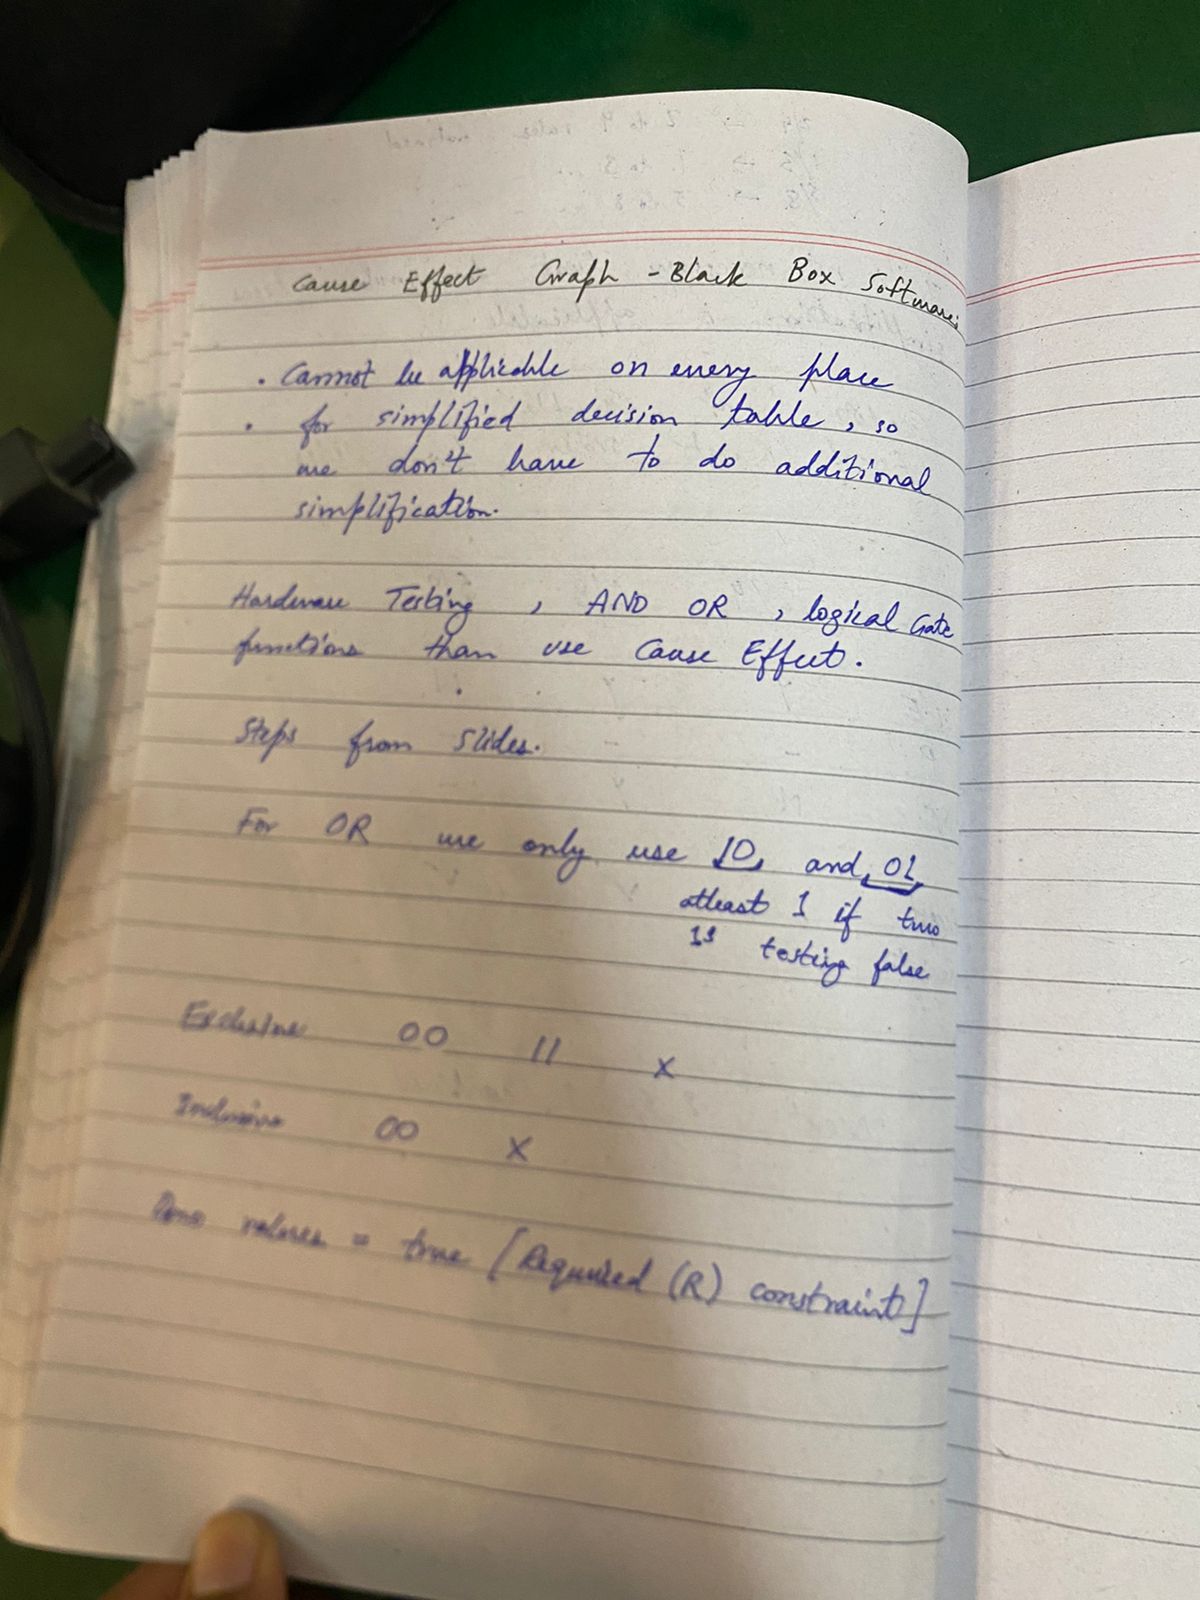 Cause Effect Graph - Black Box Software:
. Cannot be applicable on every place
. for simplified decision table, so
we don't have to do additional
simplification.
Hardware Testing, AND OR, logical Gate
functions than use Cause Effect.
Steps from slides.
For OR we only use 10, and 01,
atleast 1 if two
1s testing false
Exclusive 00 11 X
Inclusive 00 X
values = true [Required (R) constraint]